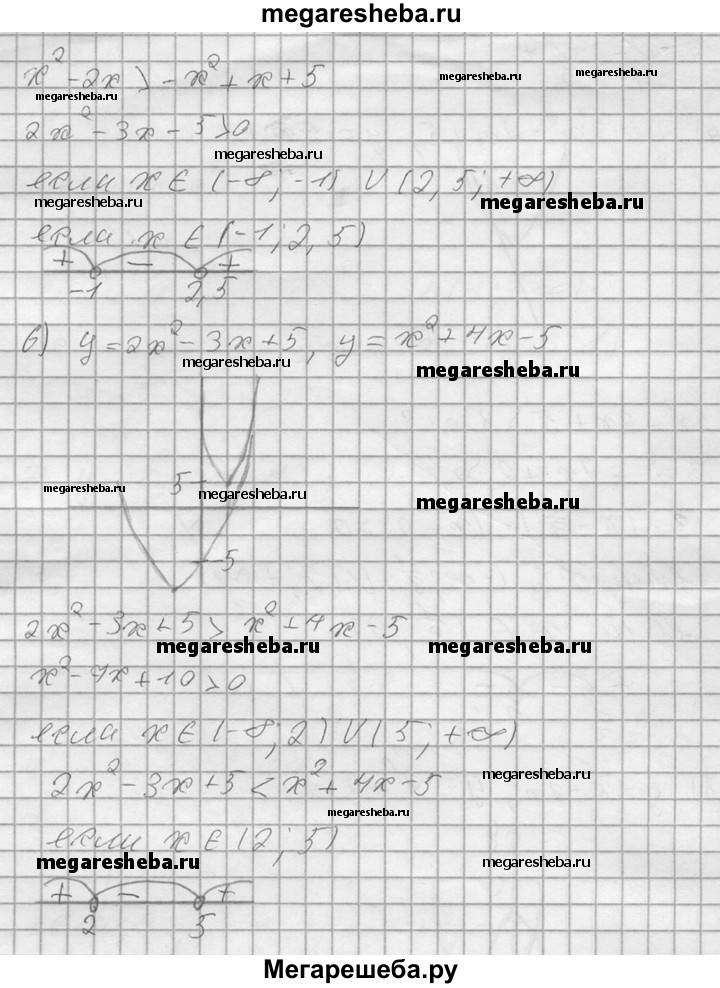 megaresheba.ru
x² - 2x > -x² + x + 5
megaresheba.ru megaresheba.ru megaresheba.ru
2x² - 3x - 5 > 0
megaresheba.ru
если x ∈ (-∞; -1) ∪ (2,5; +∞)
megaresheba.ru megaresheba.ru
если x ∈ (-1; 2,5)
+ - +
-1 2,5
б) y = 2x² - 3x + 5, y = x² + 4x - 5
megaresheba.ru megaresheba.ru
5
megaresheba.ru megaresheba.ru megaresheba.ru
-5
2x² - 3x + 5 > x² + 4x - 5
megaresheba.ru megaresheba.ru
x² - 7x + 10 > 0
если x ∈ (-∞; 2) ∪ (5; +∞)
2x² - 3x + 5 < x² + 4x - 5
megaresheba.ru
megaresheba.ru
если x ∈ (2; 5)
megaresheba.ru megaresheba.ru
+ - +
2 5
Мегарешеба.ру